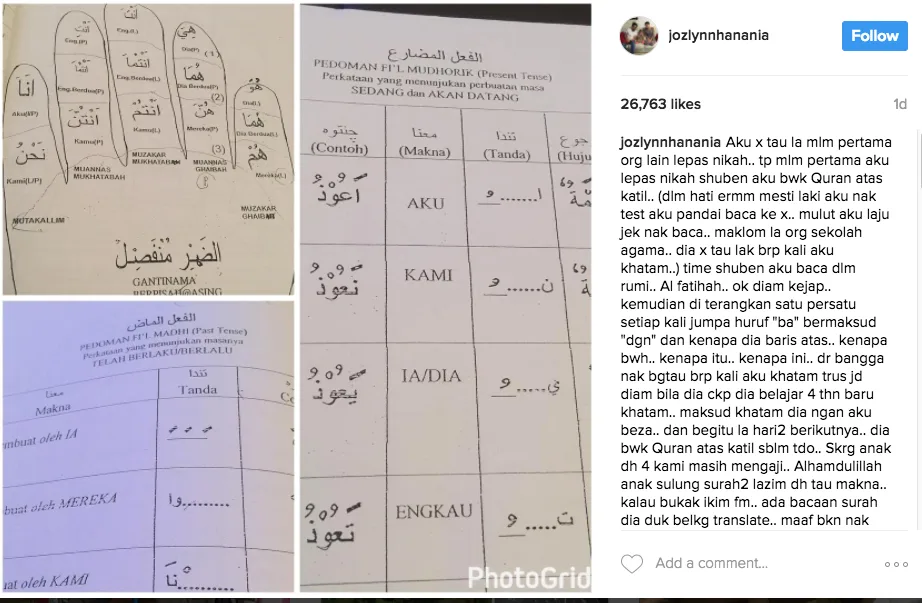 أَنْتَ
أَنْتِ
Eng.(P)
Eng.(L)
هِيَ
Dia(P)
(1)
أَنَا
Aku(L/P)
أَنْتُمَا
Eng.Berdua(P)
أَنْتُمَا
Eng.Berdua(L)
هُمَا
Dia Berdua(P)
(2)
هُوَ
Dia(L)
نَحْنُ
Kami(L/P)
أَنْتُنَّ
Kamu(P)
أَنْتُمْ
Kamu(L)
هُنَّ
Mereka(P)
(3)
هُمَا
Dia Berdua(L)
هُمْ
Mereka(L)
MUTAKALLIM
MUANNAS
MUKHATABAH
MUZAKAR
MUKHATABAH
MUANNAS
GHAIBAH
MUZAKAR
GHAIBAH
الضَّمِيْرُ مُنْفَصِلْ
GANTINAMA
BERPISAH@ASING
الفعل الماض
PEDOMAN FI'L MADHI (Past Tense)
Perkataan yang menunjukan masanya
TELAH BERLAKU/BERLALU
معنا
Makna
تندا
Tanda
buat oleh IA
buat oleh MEREKA
وا.........
uat oleh KAMI
نَا.......
الفعل المضارع
PEDOMAN FI'L MUDHORIK (Present Tense)
Perkataan yang menunjukan perbuatan masa
SEDANG dan AKAN DATANG
چنتوه
(Contoh)
معنا
(Makna)
تندا
(Tanda)
(Huju
أعوذ
AKU
ا.......و
نعوذ
KAMI
ن.......و
يعوذ
IA/DIA
ي.....و
تعوذ
ENGKAU
ت.....و
PhotoGrid
jozlynnhanania
Follow
26,763 likes
1d
jozlynnhanania Aku x tau la mlm pertama
org lain lepas nikah.. tp mlm pertama aku
lepas nikah shuben aku bwk Quran atas
katil.. (dlm hati ermm mesti laki aku nak
test aku pandai baca ke x.. mulut aku laju
jek nak baca.. maklom la org sekolah
agama.. dia x tau lak brp kali aku
khatam..) time shuben aku baca dlm
rumi.. Al fatihah.. ok diam kejap..
kemudian di terangkan satu persatu
setiap kali jumpa huruf "ba" bermaksud
"dgn" dan kenapa dia baris atas.. kenapa
bwh.. kenapa itu.. kenapa ini.. dr bangga
nak bgtau brp kali aku khatam trus jd
diam bila dia ckp dia belajar 4 thn baru
khatam.. maksud khatam dia ngan aku
beza.. dan begitu la hari2 berikutnya.. dia
bwk Quran atas katil sblm tdo.. Skrg anak
dh 4 kami masih mengaji.. Alhamdulillah
anak sulung surah2 lazim dh tau makna..
kalau bukak ikim fm.. ada bacaan surah
dia duk belkg translate.. maaf bkn nak
Add a comment...